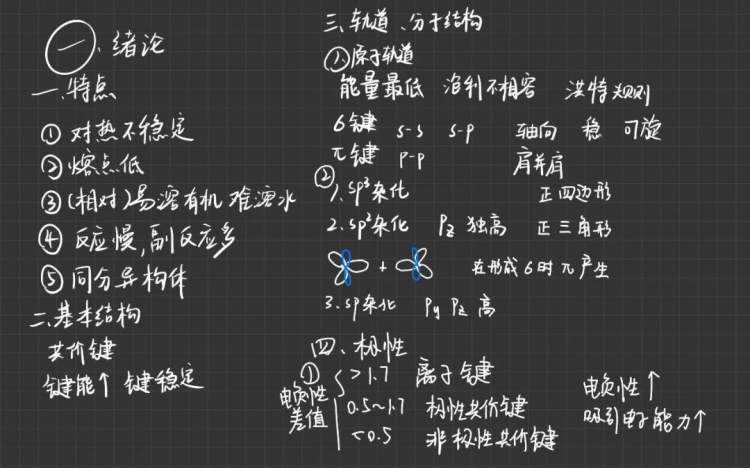 一、绪论
一、特点
① 对热不稳定
② 熔点低
③ (相对)易溶有机 难溶水
④ 反应慢,副反应多
⑤ 同分异构体
二、基本结构
共价键
键能↑ 键稳定
三、轨道、分子结构
①原子轨道
能量最低 泡利不相容 洪特规则
σ键 s-s s-p 轴向 稳 可旋
π键 p-p 肩并肩
②1.sp³杂化 正四边形
2.sp²杂化 Pz 独高 正三角形
+ 在形成σ时π产生
3.sp杂化 Py Pz 高
四、极性
① 电负性差值
>1.7 离子键
0.5~1.7 极性共价键
<0.5 非极性共价键
电负性↑
吸引电子能力↑